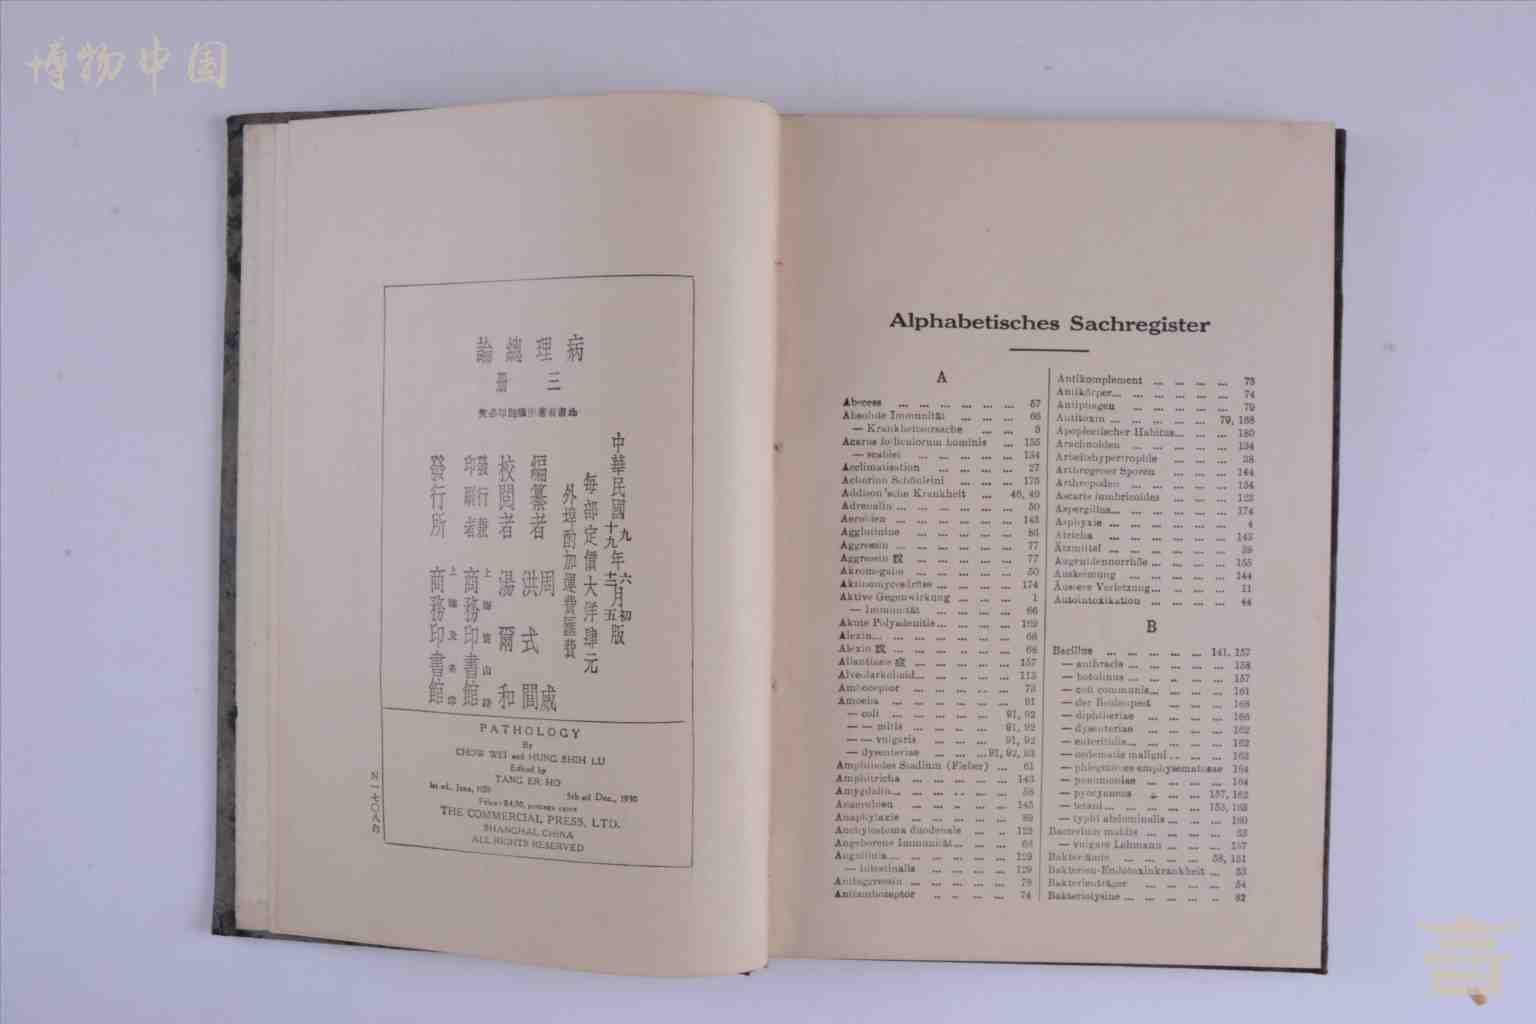 博物中国
病理總論
三冊
中華民國
九年六月初版
十九年十二月五版
每部定價大洋肆元
外埠酌加運費匯費
編纂者 周威 洪式閭
校閱者 湯爾和
發行兼印刷者 商務印書館
發行所 商務印書館
PATHOLOGY
By
CHOW WEI and HUNG SHIH LU
Edited by
TANG ER HO
1st ed., June, 1920 5th ed Dec., 1930
THE COMMERCIAL PRESS, LTD.
SHANGHAI, CHINA
ALL RIGHTS RESERVED
Alphabetisches Sachregister
A
Abscess ... 57
Absolute Immunität ... 66
— Krankheitsursache ... 3
Acarus folliculorum hominis ... 135
— scabiei ... 134
Acclimatisation ... 27
Achorion Schönleini ... 175
Addison'sche Krankheit ... 46, 49
Adrenalin ... 50
Aerobien ... 143
Agglutinine ... 86
Aggressin ... 77
Aggressin 說 ... 77
Akromegalie ... 50
Aktinomycesdrüse ... 174
Aktive Gegenwirkung ... 1
— Immunität ... 66
Akute Polyadenitis ... 169
Alexin ... 68
Alexin 說 ... 68
Allantiasis 症 ... 157
Alveolarkolloid ... 113
Amboceptor ... 73
Amoeba ... 91
— coli ... 91, 92
— — mitis ... 91, 92
— — vulgaris ... 91, 92
— dysenteriae ... 91, 92, 93
Amphiboles Stadium (Fieber) ... 61
Amphitricha ... 143
Amygdalin ... 58
Anaerobien ... 145
Anaphylaxie ... 89
Anchylostoma duodenale ... 123
Angeborene Immunität ... 64
Anguillula ... 129
— intestinalis ... 129
Antiaggressin ... 78
Antiamboceptor ... 74
Antikomplement ... 73
Antikörper ... 74
Antiphagen ... 79
Antitoxin ... 79, 168
Apoplectischer Habitus ... 180
Arachnoiden ... 134
Arbeitshypertrophie ... 28
Arthrogener Sporen ... 144
Arthropoden ... 134
Ascaris lumbricoides ... 123
Aspergillus ... 174
Asphyxie ... 4
Atricha ... 143
Ätzmittel ... 39
Augenblennorrhöe ... 155
Auskeimung ... 144
Äussere Verletzung ... 11
Autointoxikation ... 44
B
Bacillus ... 141, 157
— anthracis ... 158
— botulinus ... 157
— coli communis ... 161
— der Beulenpest ... 168
— diphtheriae ... 166
— dysenteriae ... 162
— enteritidis ... 162
— oedematis maligni ... 163
— phlegmones emphysematosae 164
— pneumoniae ... 164
— pyocyaneus ... 157, 162
— tetani ... 153, 163
— typhi abdominalis ... 160
Bacterium mallis ... 53
— vulgare Lehmann ... 157
Bakteriämie ... 58, 151
Bakterien-Endotoxinkrankheit ... 53
Bakterienträger ... 54
Bakteriolysine ... 82